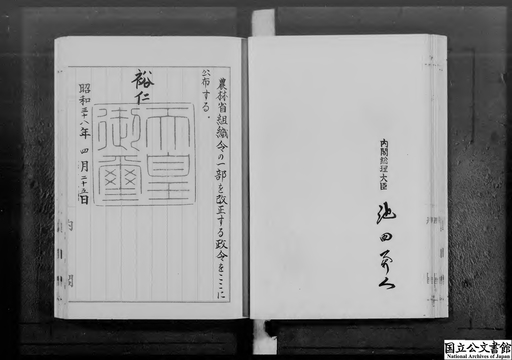 農林省組織令の一部を改正する政令をここに
公布する。
裕仁
天皇
御璽
昭和三十八年四月二十五日
内閣
内閣総理大臣
池田勇人
国立公文書館
National Archives of Japan